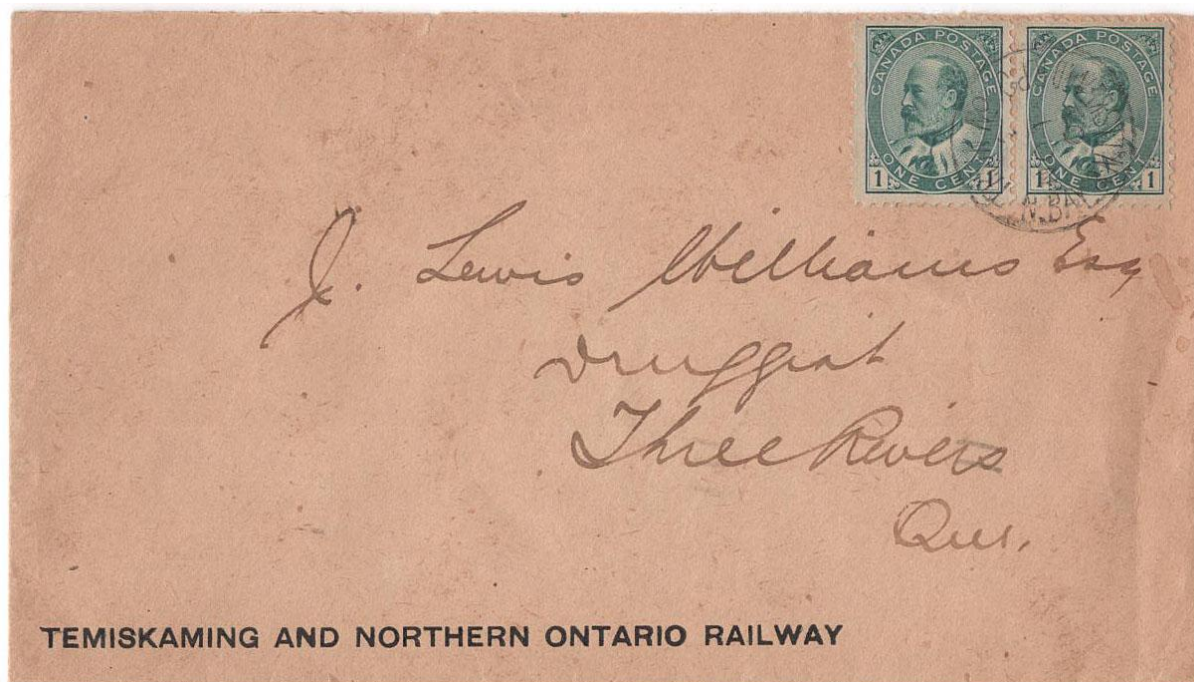 CANADA POSTAGE CANADA POSTAGE
1 ONE CENT 1 1 ONE CENT 1
N.BAY
J. Lewis Williams Esq
Druggist
Three Rivers
Que.
TEMISKAMING AND NORTHERN ONTARIO RAILWAY